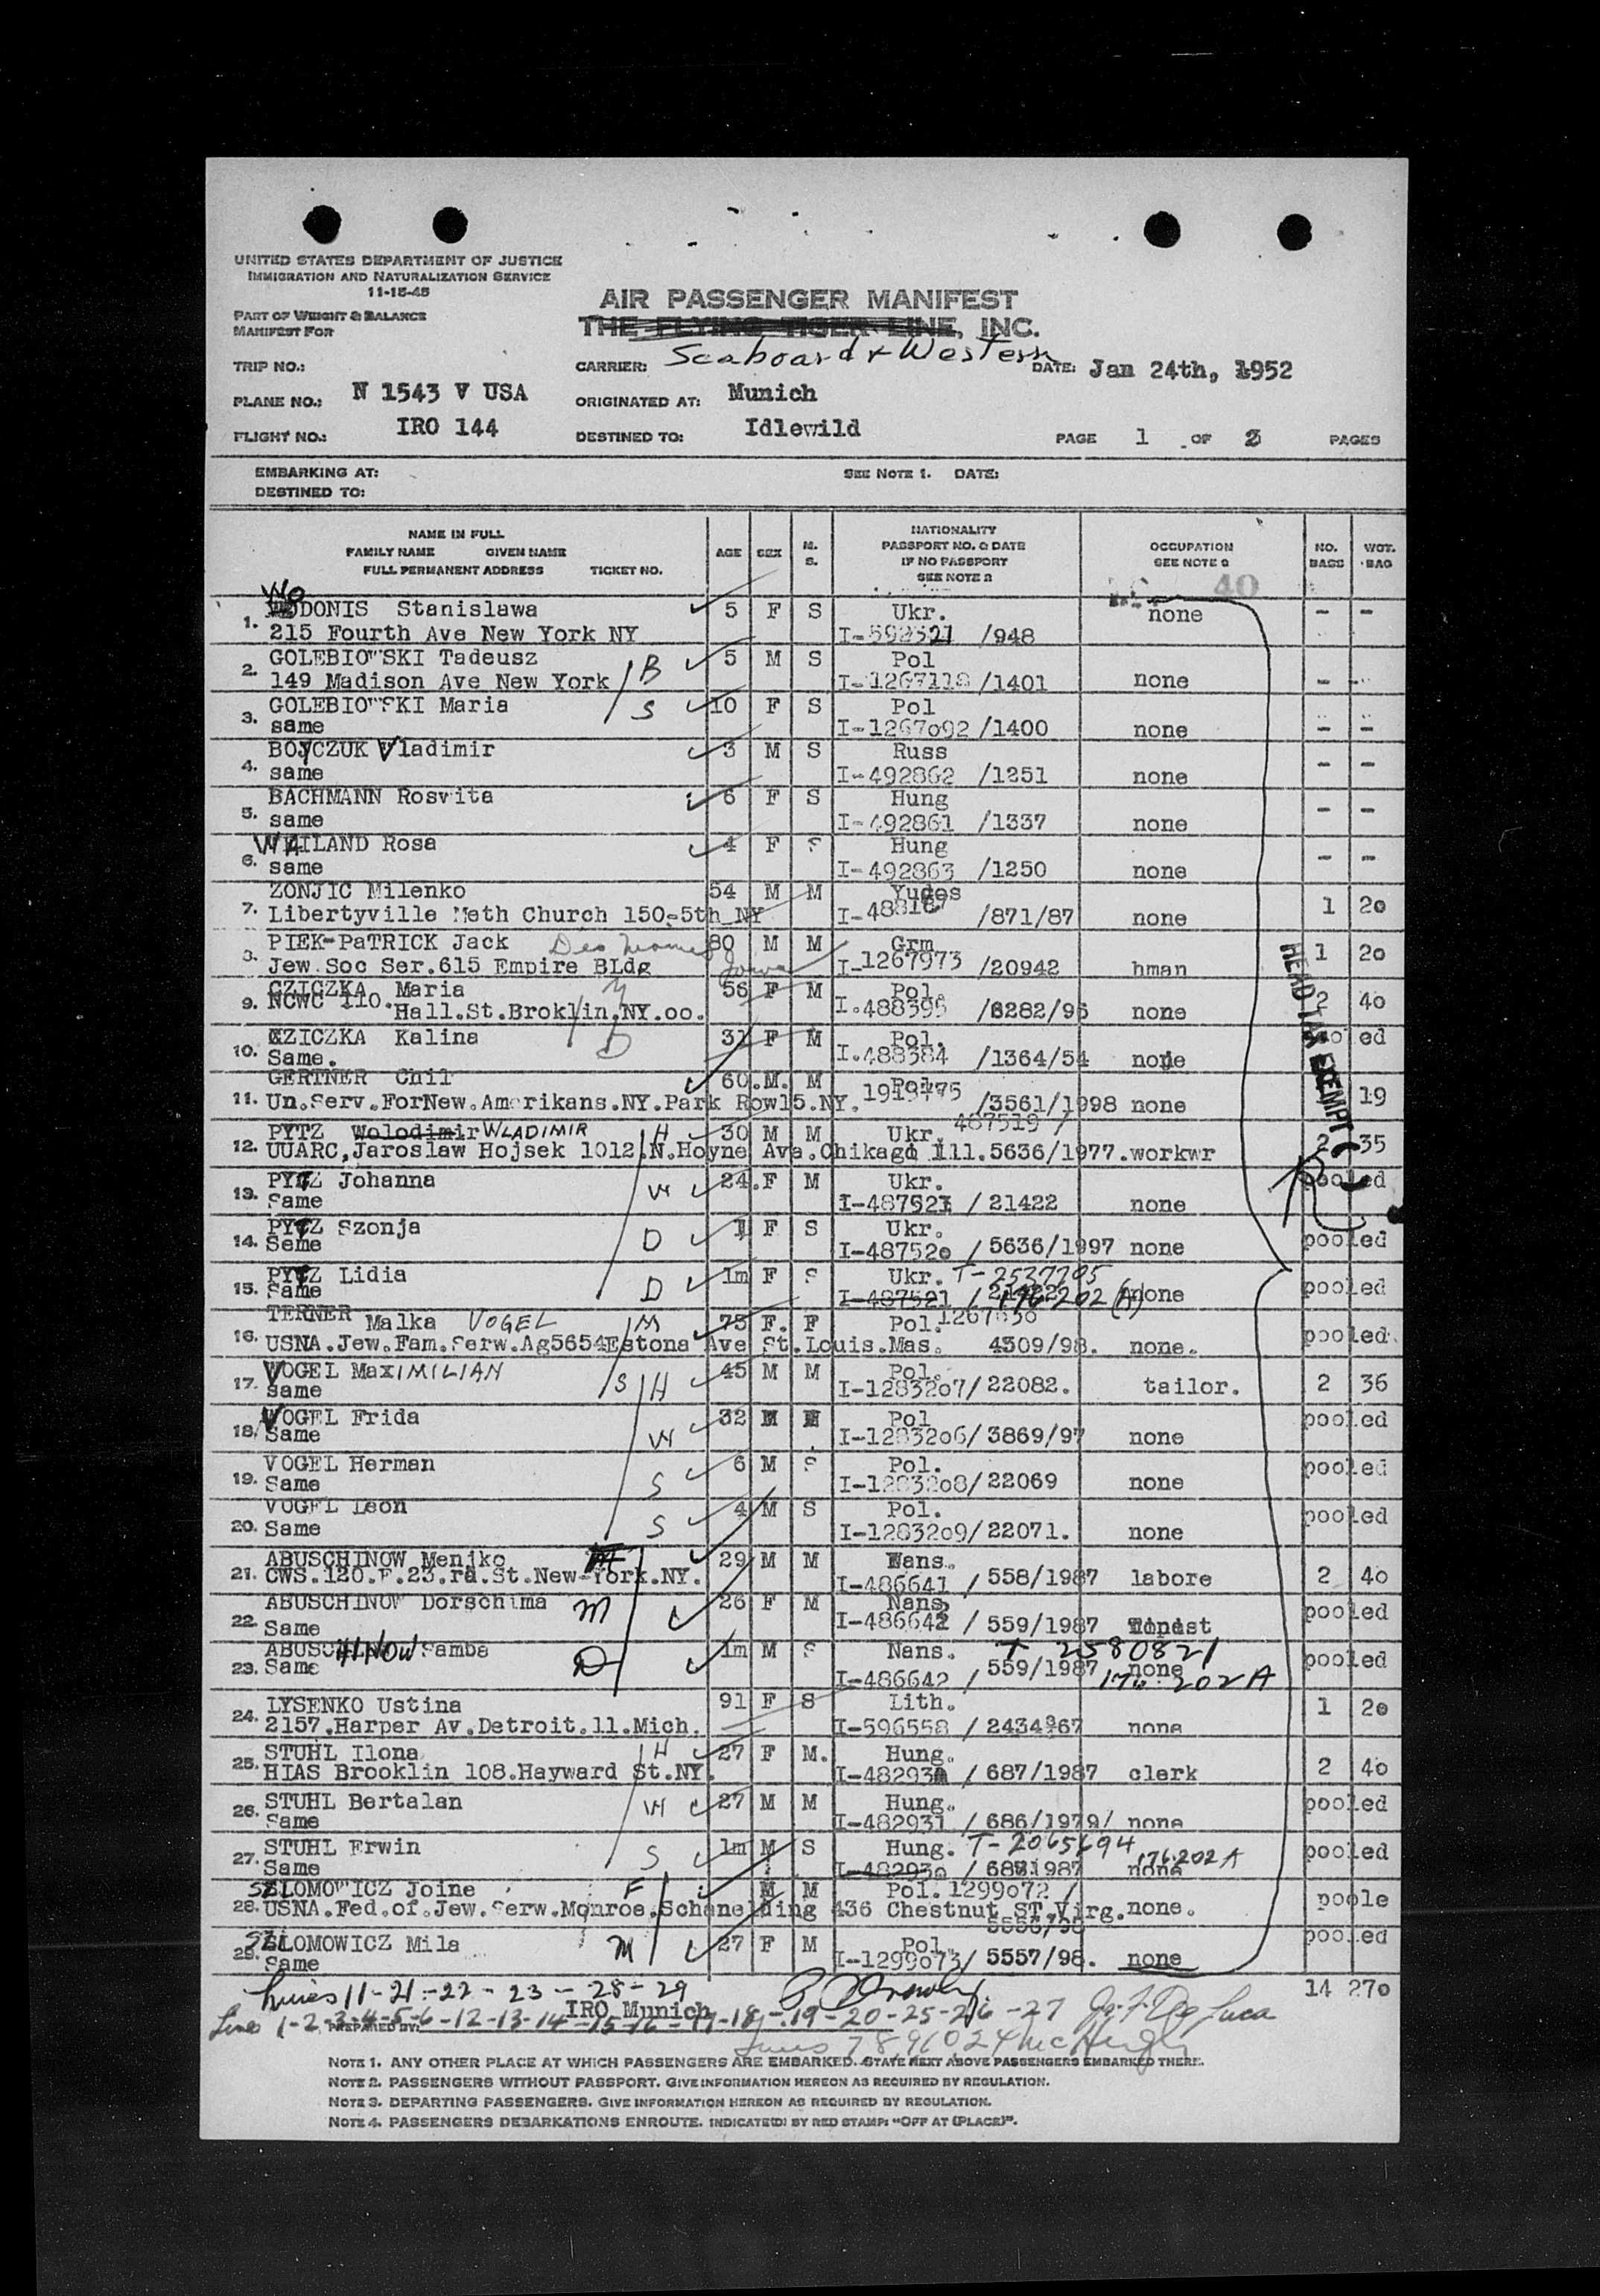 UNITED STATES DEPARTMENT OF JUSTICE
IMMIGRATION AND NATURALIZATION SERVICE
11-15-45
PART OF WEIGHT & BALANCE
MANIFEST FOR
AIR PASSENGER MANIFEST
THE FLYING TIGER LINE, INC.
TRIP NO.: CARRIER: Seaboard & Western DATE: Jan 24th, 1952
PLANE NO.: N 1543 V USA ORIGINATED AT: Munich
FLIGHT NO.: IRO 144 DESTINED TO: Idlewild PAGE 1 OF 3 PAGES
EMBARKING AT: SEE NOTE 1. DATE:
DESTINED TO:
NAME IN FULL
FAMILY NAME GIVEN NAME
FULL PERMANENT ADDRESS TICKET NO.
AGE SEX M. S.
NATIONALITY
PASSPORT NO. & DATE
IF NO PASSPORT
SEE NOTE 2
OCCUPATION
SEE NOTE 2
NO. BAGS WGT. BAG
40
1. WODONIS Stanislawa 5 F S Ukr. none - -
215 Fourth Ave New York NY I-592321 /948
2. GOLEBIOWSKI Tadeusz B 5 M S Pol
149 Madison Ave New York I-1267118 /1401 none - -
3. GOLEBIOWSKI Maria S 10 F S Pol
same I-1267092 /1400 none - -
4. BOYCZUK Vladimir 3 M S Russ
same I-492862 /1251 none - -
5. BACHMANN Rosvita 6 F S Hung
same I-492861 /1337 none - -
6. WAILAND Rosa 4 F S Hung
same I-492863 /1250 none - -
7. ZONJIC Milenko 54 M M Yudos
Libertyville Meth Church 150-5th NY I-488167 /871/87 none 1 20
8. PIEK-PaTRICK Jack Des Moines 80 M M Grm
Jew Soc Ser.615 Empire BLdg Iowa I-1267973 /20942 hman 1 20
9. CZICZKA Maria M 56 F M Pol.
NCWC 110. Hall.St.Broklin.NY.oo. I.488395 /6282/95 none 2 40
10. CZICZKA Kalina D 31 F M Pol.
Same. I.488384 /1364/54 none pooled
11. GERTNER Chil 60.M. M Pol.
Un.Serv.ForNew.Amerikans.NY.Park Row15.NY. 1919475 /3561/1998 none 19
12. PYTZ Wolodimir WLADIMIR H 30 M M Ukr. 487519 /
UUARC,Jaroslaw Hojsek 1012.N.Hoyne Ava.Chikago ill.5636/1977.workwr 2 35
13. PYTZ Johanna W 24.F M Ukr.
Same I-487521 / 21422 none pooled
14. PYTZ Szonja D 1 F S Ukr.
Seme I-487520 / 5636/1997 none pooled
15. PYTZ Lidia D 1m F S Ukr. T-2537705
Same I-487521 / 21422 176 202 (A) none pooled
16. TERNER Malka VOGEL M 75 F. F Pol. 1267650
USNA.Jew.Fam.Serw.Ag5654Estona Ave St.Louis.Mas. 4309/98. none. pooled.
17. VOGEL MaxIMILIAN S H 45 M M Pol.
same I-1283207/22082. tailor. 2 36
18. VOGEL Frida W 32 Pol
Same I-1283206/3869/97 none pooled
19. VOGEL Herman S 6 M S Pol.
Same I-1283208/22069 none pooled
20. VOGEL Leon S 4 M S Pol.
Same I-1283209/22071. none pooled
21. ABUSCHINOW Menjko F 29 M M Nans.
CWS.120.E.23.rd.St.New-York.NY. I-486641 / 558/1987 labore 2 40
22. ABUSCHINOW Dorschima M 26 F M Nans.
Same I-486642 / 559/1987 pooled
23. ABUSCHINOW Samba D 1m M S Nans. T 2580821
Same I-486642 / 559/1987 none 176.202A pooled
24. LYSENKO Ustina 91 F S Lith.
2157.Harper Av.Detroit.11.Mich. I-596558 / 2434867 none 1 20
25. STUHL Ilona H 27 F M. Hung.
HIAS Brooklin 108.Hayward St.NY. I-482930 / 687/1987 clerk 2 40
26. STUHL Bertalan W 27 M M Hung.
Same I-482931 / 686/1979/ none pooled
27. STUHL Erwin S 1m M S Hung. T-2065694
Same I-482930 / 687/1987 none 176.202 A pooled
28. SZLOMOWICZ Joine F M M Pol.1299072 /
USNA.Fed.of.Jew.Serw.Monroe.Schanelding 436 Chestnut ST.Virg.none. poole
5556/98
29. SZLOMOWICZ Mila M 27 F M Pol.
Same I-1299073/ 5557/98. none pooled
HEAD TAX EXEMPT ( )
14 270
Lines 11-21-22-23-28-29
IRO Munich
PREPARED BY:
Lines 1-2-3-4-5-6-12-13-14-15-16-17-18-19-20-25-26-27
Lines 7 8 9 10 24 McHugh
NOTE 1. ANY OTHER PLACE AT WHICH PASSENGERS ARE EMBARKED. STATE NEXT ABOVE PASSENGERS EMBARKED THERE.
NOTE 2. PASSENGERS WITHOUT PASSPORT. GIVE INFORMATION HEREON AS REQUIRED BY REGULATION.
NOTE 3. DEPARTING PASSENGERS. GIVE INFORMATION HEREON AS REQUIRED BY REGULATION.
NOTE 4. PASSENGERS DEBARKATIONS ENROUTE. INDICATED: BY RED STAMP: "OFF AT (PLACE)".